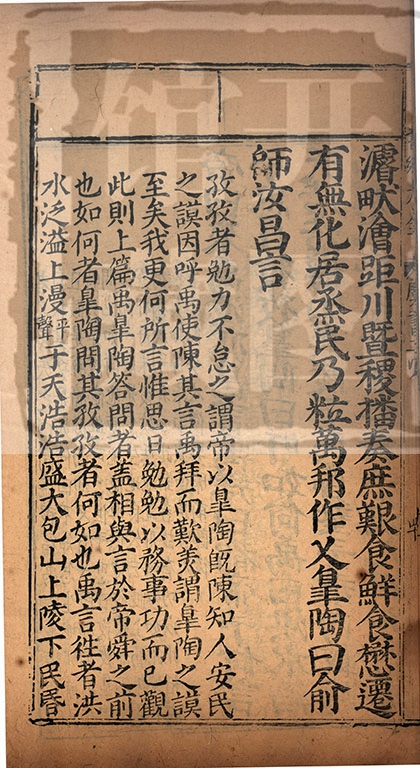 濬畎澮距川暨稷播奏庶艱食鮮食懋遷
有無化居烝民乃粒萬邦作乂皐陶曰俞
師汝昌言
孜孜者勉力不怠之謂帝以皐陶旣陳知人安民
之謨因呼禹使陳其言禹拜而歎美謂皐陶之謨
至矣我更何所言惟思日勉勉以務事功而已觀
此則上篇禹皐陶答問者蓋相與言於帝舜之前
也如何者皐陶問其孜孜者何如也禹言徃者洪
水泛溢上漫平聲于天浩浩盛大包山上陵下民昬